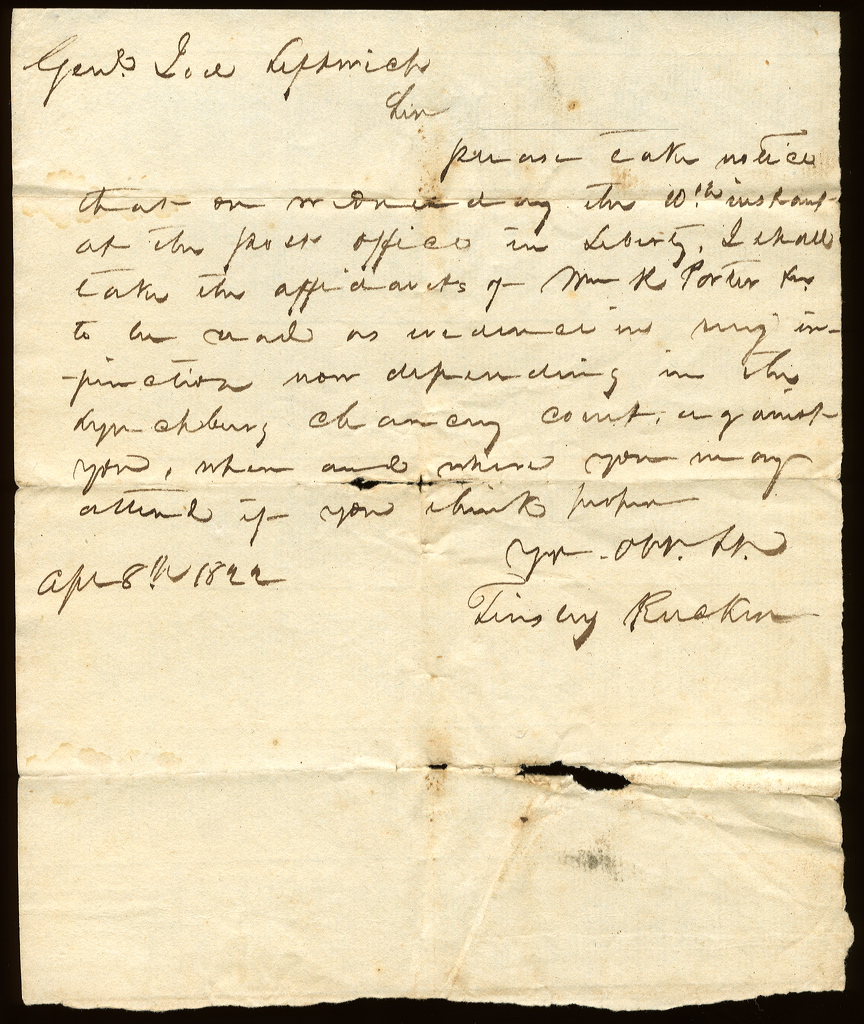 Genl. Joel Leftwich
Sir
please take notice
that on wednesday the 10th instant
at the post office in Liberty, I shall
take the affidavits of Wm R Porter &c.
to be read as evidence in my in-
-junction now depending in the
Lynchburg chancery court, against
you, when and where you may
attend if you think proper
Yr. Obt. St.
Apl 8th 1822
Tinsley Rucker